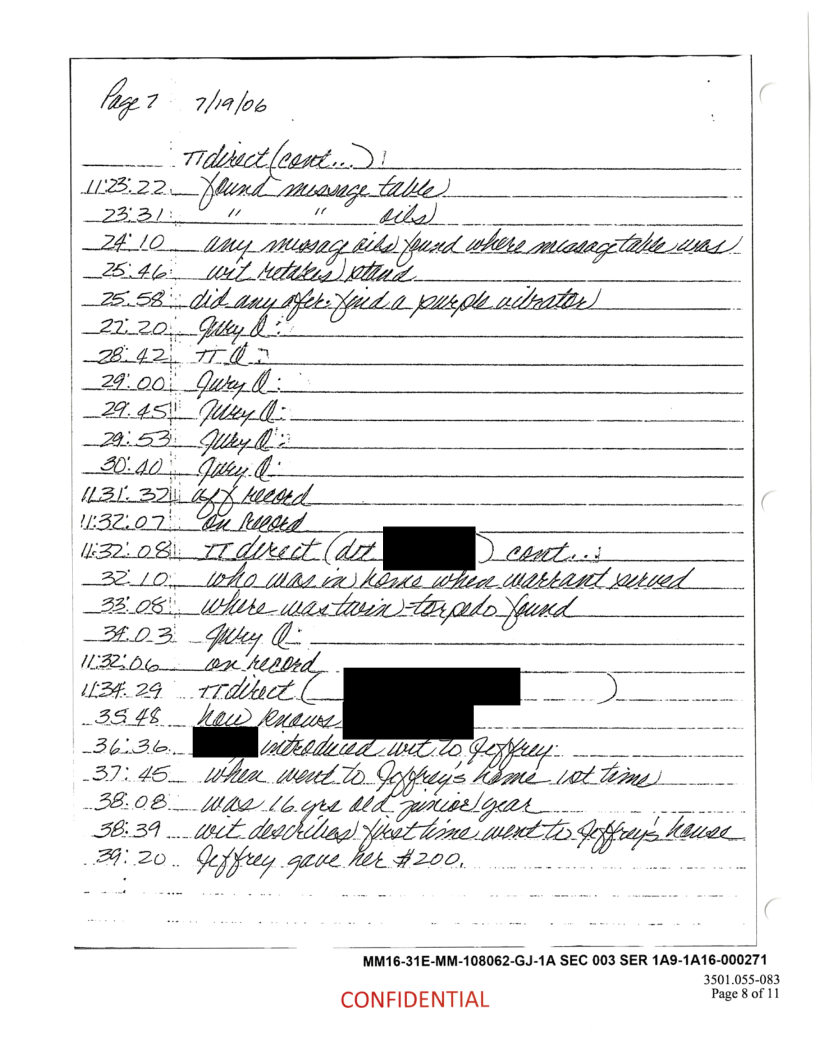 Page 7 7/19/06
π direct (cont...):
11:23:22 found massage table
23:31: " " oils
24:10 any massage oils found where massage table was
25:46: wit retakes stand
25:58: did any ofcr. find a purple vibrator
27:20: Jury Q:
28:42 π Q:
29:00: Jury Q:
29:45 Jury Q:
29:53 Jury Q:
30:40 Jury Q:
11:31:32 off record
11:32:07 on record
11:32:08 π direct (dtt ) cont...:
32:10 who was in home when warrant served
33:08 where was twin torpedo found
34:03 Jury Q:
11:32:06 on record
11:34:29 π direct ( )
35:48 how knows
36:36 introduced wit to Jeffrey
37:45 when went to Jeffrey's home 1st time
38:08 was 16 yrs old junior year
38:39 wit describes first time went to Jeffrey's house
39:20 Jeffrey gave her $200.
MM16-31E-MM-108062-GJ-1A SEC 003 SER 1A9-1A16-000271
3501.055-083
Page 8 of 11
CONFIDENTIAL